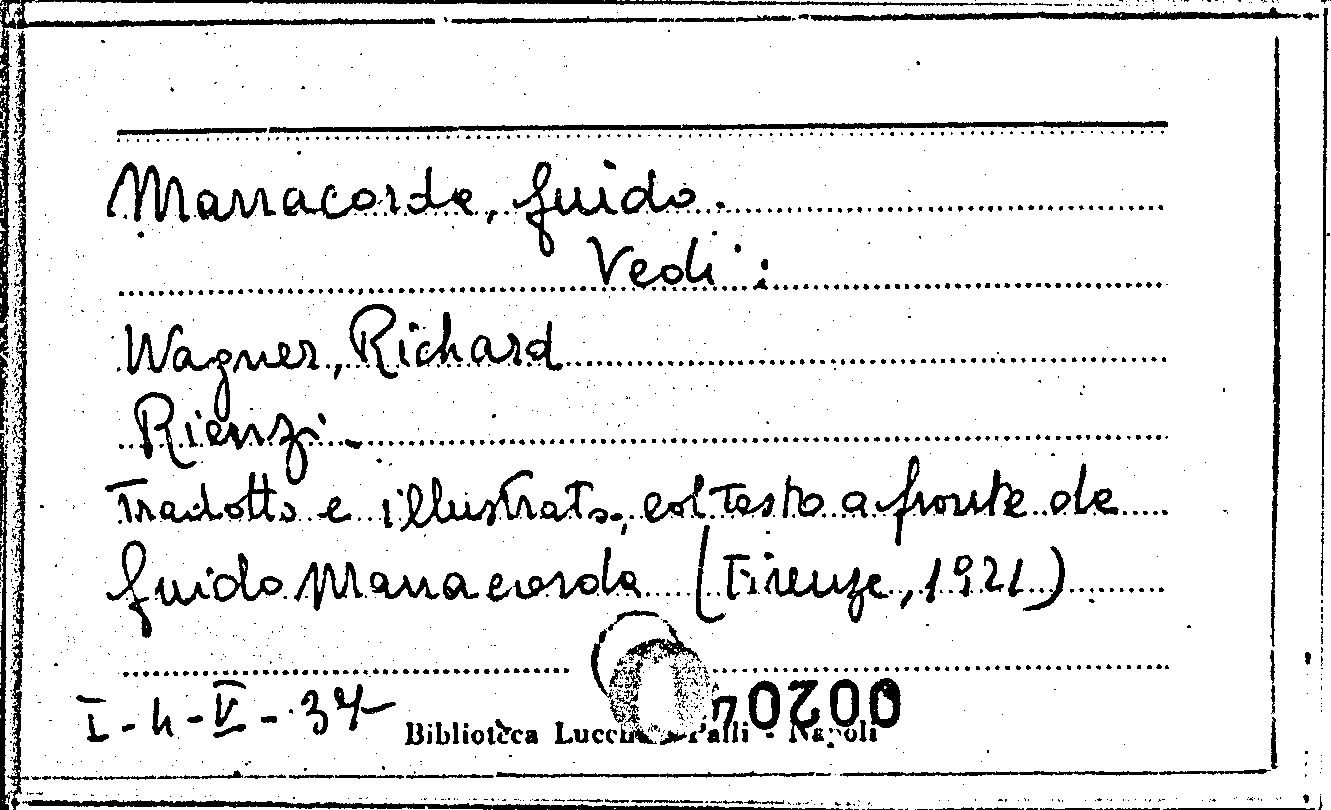 Manacorda, Guido.
Vedi:
Wagner, Richard
Rienzi.
Tradotto e illustrato, col testo a fronte da
Guido Manacorda (Firenze, 1921)
I-4-V-34
Biblioteca Lucchesi Palli - Napoli